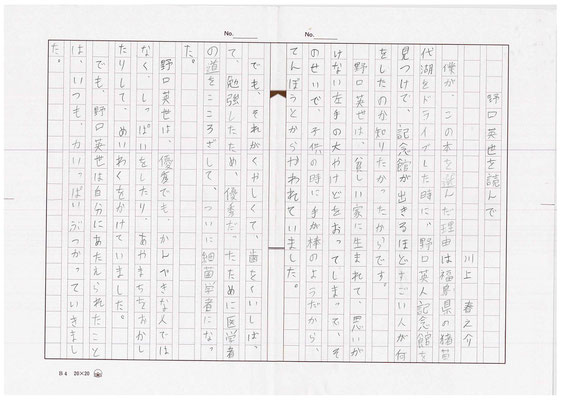 No.
No.
野口英世を読んで
川上 春之介
僕が、この本を選んだ理由は福島県の猪苗
代湖をドライブした時に、野口英世記念館を
見つけて、記念館が出きるほどすごい人が何
をしたのか知りたかったからです。
野口英世は、貧しい家に生まれて、悪いが
けない左手の大やけどをおってしまって、そ
のせいで、子供の時に手が棒のようだから、
てんぼうとからかわれていました。
でも、それがくやしくて、歯をくいしば
て、勉強したため、優秀だ。ために医学者
の道をこころざして、ついに細菌学者にな。
た。
野口英世は、優秀でも、かんぺきな人では
なく、しっぱいをしたり、あやまちをおかし
たりして、めいわくをかけていました。
でも、野口英世は自分にあたえられたこと
は、いつも、力いっぱいぶつかっていきまし
た。
B4 20×20